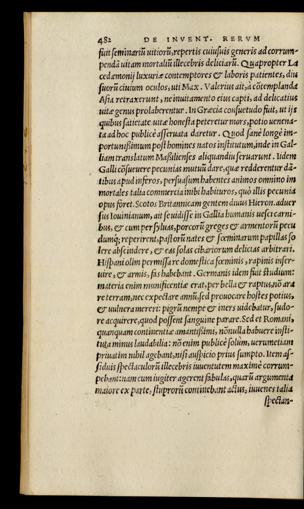 482 DE INVENT. RERVM
fuit seminariũ uitiorũ, repertis cuiusuis generis ad corrum-
pendã uitam mortaliũ illecebris deliciarũ. Quapropter La
cedæmonij luxuriæ contemptores & laboris patientes, diu
suorũ ciuium oculos, uti Max. Valerius ait, à cõtemplanda
Asia retraxerunt, ne inuitamento eius capti, ad delicatius
uitæ genus prolaberentur. In Græcia consuetudo fuit, ut ijs
quibus satietate uitæ honesta peteretur mors, potio uenena-
ta ad hoc publicè asseruata daretur. Quod sanè longè im-
portunissimum post homines natos institutum, inde in Gal-
liam translatum Massilienses aliquandiu seruarunt. Iidem
Galli cõsueuere pecunias mutuũ dare, quæ redderentur dã-
tibus apud inferos, persuasum habentes animos omnino im
mortales talia commercia inibi habituros, quò illis pecunia
opus foret. Scotos Britannicam gentem diuus Hieron. aduer
sus Iouinianum, ait se uidisse in Gallia humanis uesci carni-
bus, & cum per syluas, porcorũ greges & armentorũ pecu
dumq; reperirent, pastorũ nates & fœminarum papillas so
lere abscindere, & eas solas cibariorum delicias arbitrari.
Hispani olim permissæ domestica fœminis, rapinis inser-
uire, & armis, fas habebant. Germanis idem fuit studium:
materia enim munificentiæ erat, per bella & raptus, nõ ara
re terram, nec expectare annũ, sed prouocare hostes potius,
& uulnera mereri: pigrũ nempe & iners uidebatur, sudo-
re acquirere, quod possent sanguine parare. Sed et Romani,
quanquam continentiæ amantissimi, nõnulla habuere insti-
tuta minus laudabilia: nõ enim publicè solùm, uerumetiam
priuatim nihil agebant, nisi auspicio prius sumpto. Item as-
siduis spectaculorũ illecebris iuuentutem maximè corrum-
pebant: nam cum iugiter agerent fabulas, quarũ argumenta
maiore ex parte, stuprorũ continebant actus, iuuenes talia
spectan-